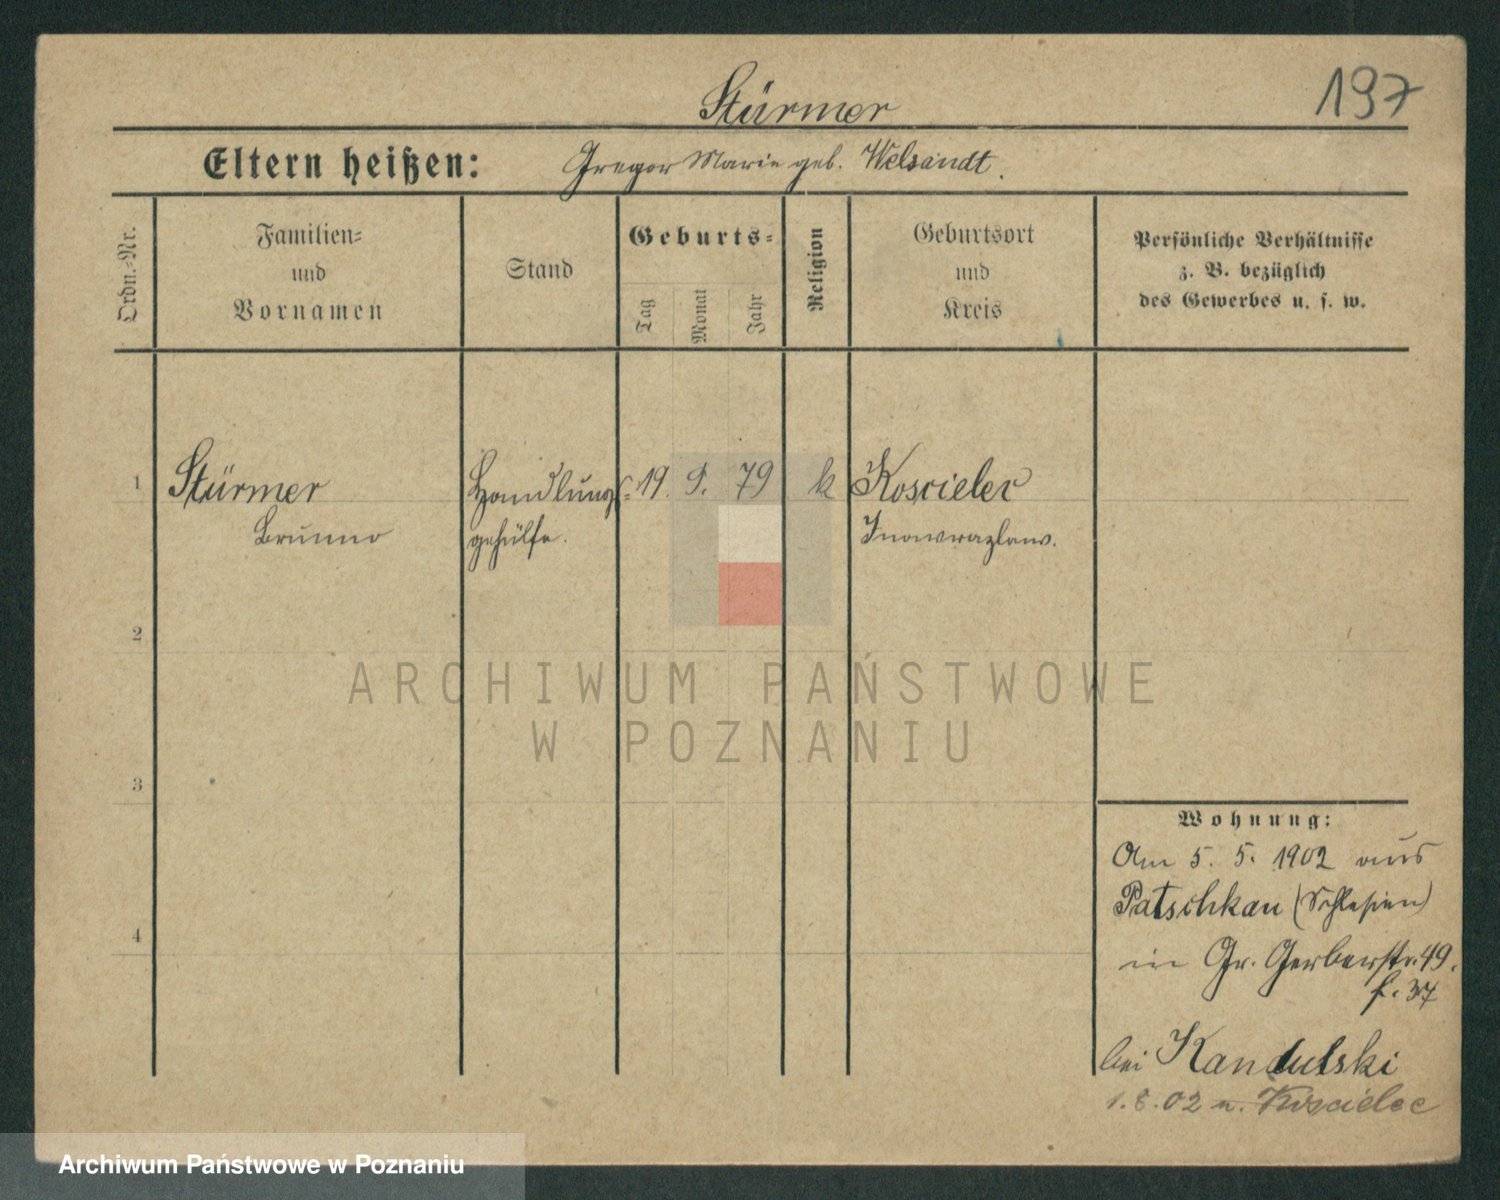 197
Stürmer
Eltern heißen: Gregor Marie geb. Welsandt.
Ordn.-Nr.
Familien-
und
Vornamen
Stand
Geburts-
Tag
Monat
Jahr
Religion
Geburtsort
und
Kreis
Persönliche Verhältnisse
z. B. bezüglich
des Gewerbes u. s. w.
1 Stürmer Handlungs- 19. 9. 79 k Koscielec
Brunno gehülfe. Inowrazlaw.
2
3
4
Wohnung:
Am 5. 5. 1902 aus
Patschkau (Schlesien)
in Gr. Gerberstr. 49.
f. 37
bei Kandulski
1. 8. 02 n. Koscielec
ARCHIWUM PAŃSTWOWE
W POZNANIU
Archiwum Państwowe w Poznaniu